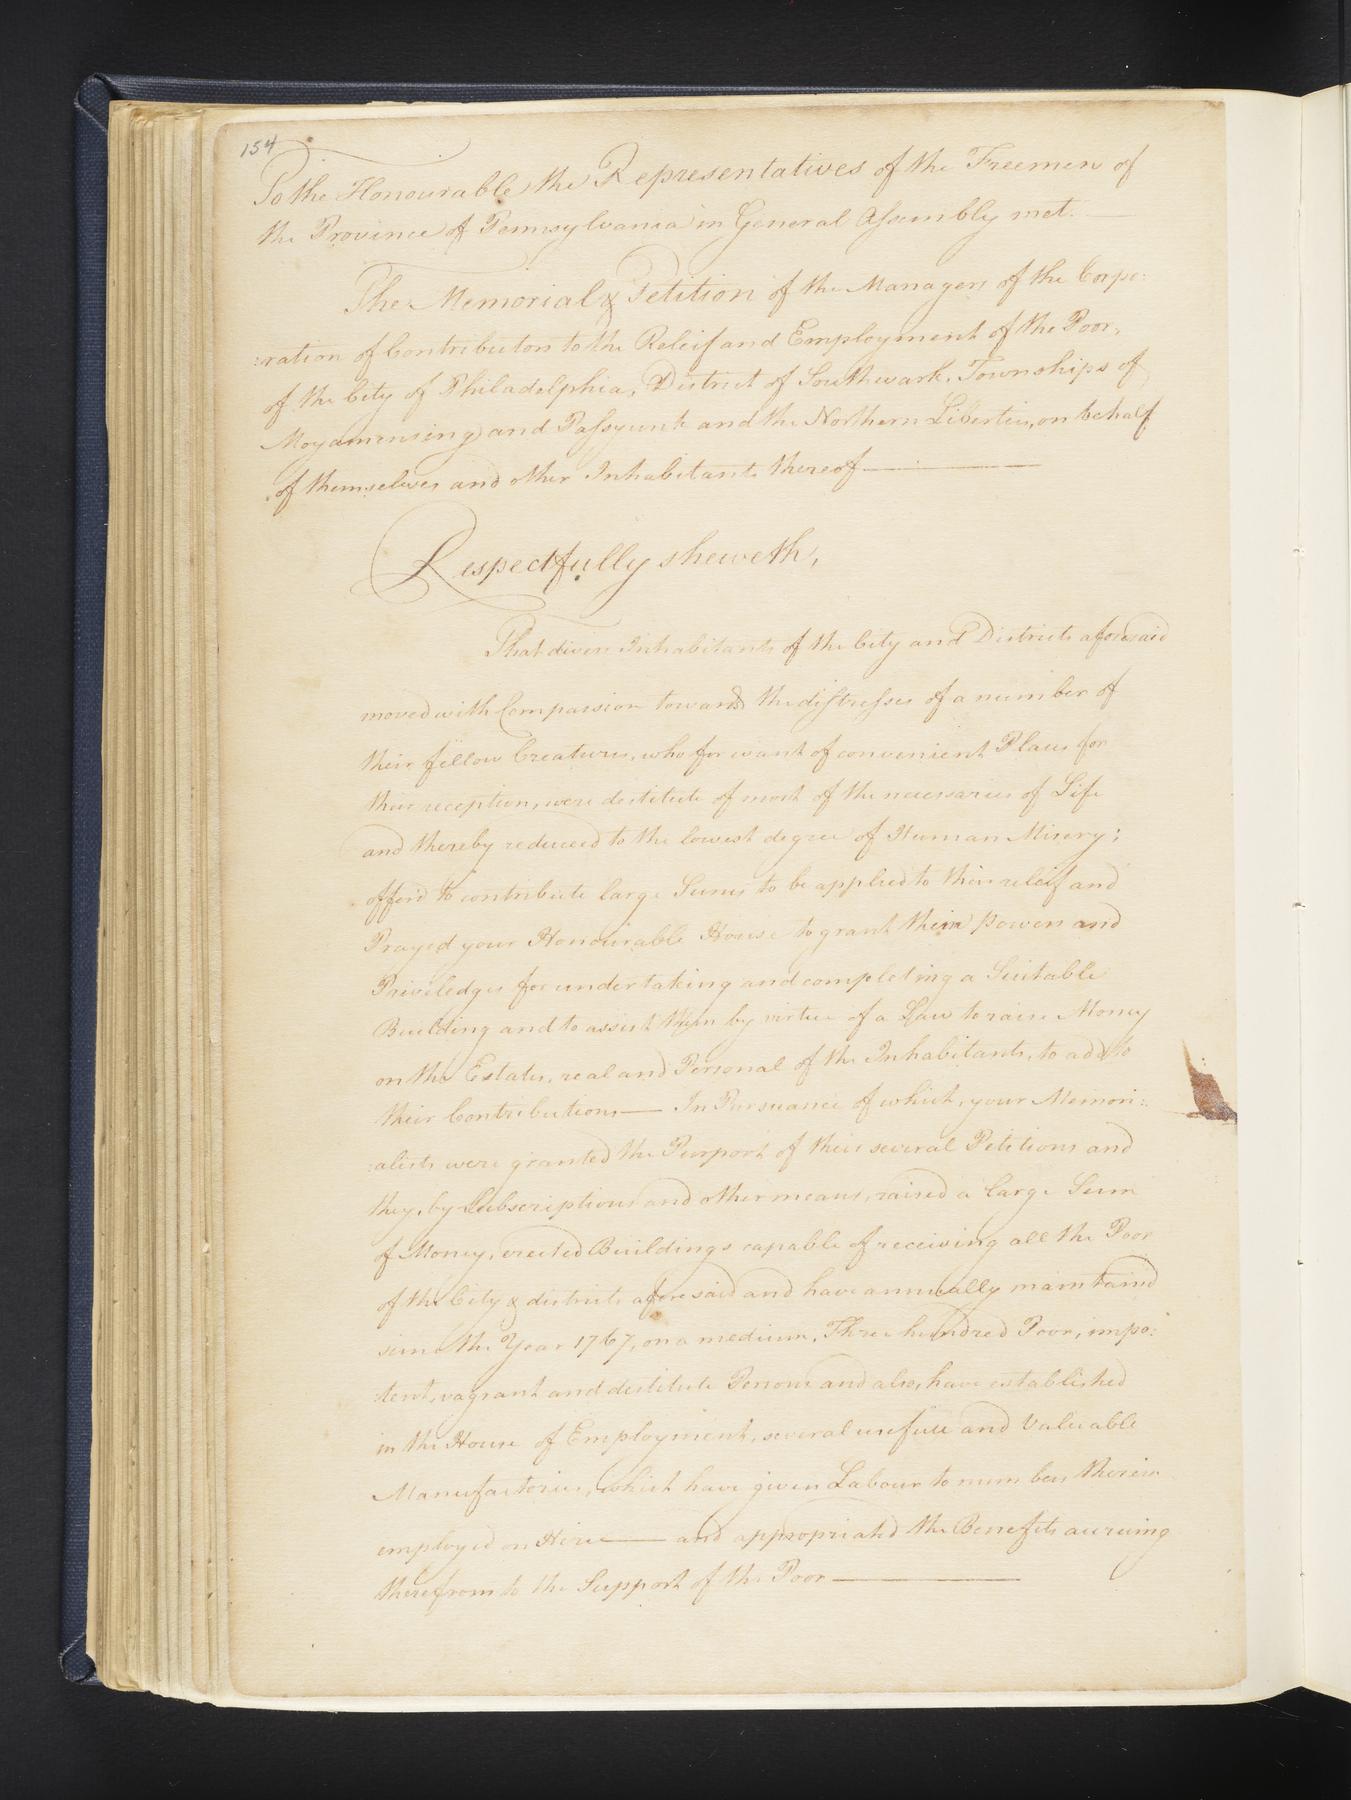 154
To the Honourable the Representatives of the Freemen of
the Province of Pennsylvania in General Assembly met. —
The Memorial & Petition of the Managers of the Corpo:
:ration of Contributors to the Releif and Employment of the Poor,
of the City of Philadelphia, District of Southwark, Townships of
Moyamensing and Passyunk and the Northern Liberties, on behalf
of themselves and other Inhabitants thereof —
Respectfully sheweth,
That divers Inhabitants of the City and Districts aforesaid
moved with Compassion towards the distresses of a number of
their fellow Creatures, who for want of convenient Places for
their reception, were destitute of most of the necessaries of Life
and thereby reduced to the lowest degree of Human Misery;
offerd to contribute large Sums to be applied to their releif and
Prayed your Honourable House to grant them Powers and
Priviledges for undertaking and completing a Suitable
Building and to assist them by virtue of a Law to raise Money
on the Estates, real and Personal of the Inhabitants, to add to
their Contributions — In Pursuance of which, your Memori:
:alists were granted the Purport of their several Petitions and
they, by Subscriptions and other means, raised a large Sum
of Money, erected Buildings capable of receiving all the Poor
of the City & districts aforesaid and have annually maintained
since the Year 1767, on a medium, Three hundred Poor, impo:
:tent, vagrant and destitute Persons and also, have established
in the House of Employment, several usefull and Valuable
Manufactories, which have given Labour to numbers therein
employed on Hire — and appropriated the Benefits accruing
therefrom to the Support of the Poor —